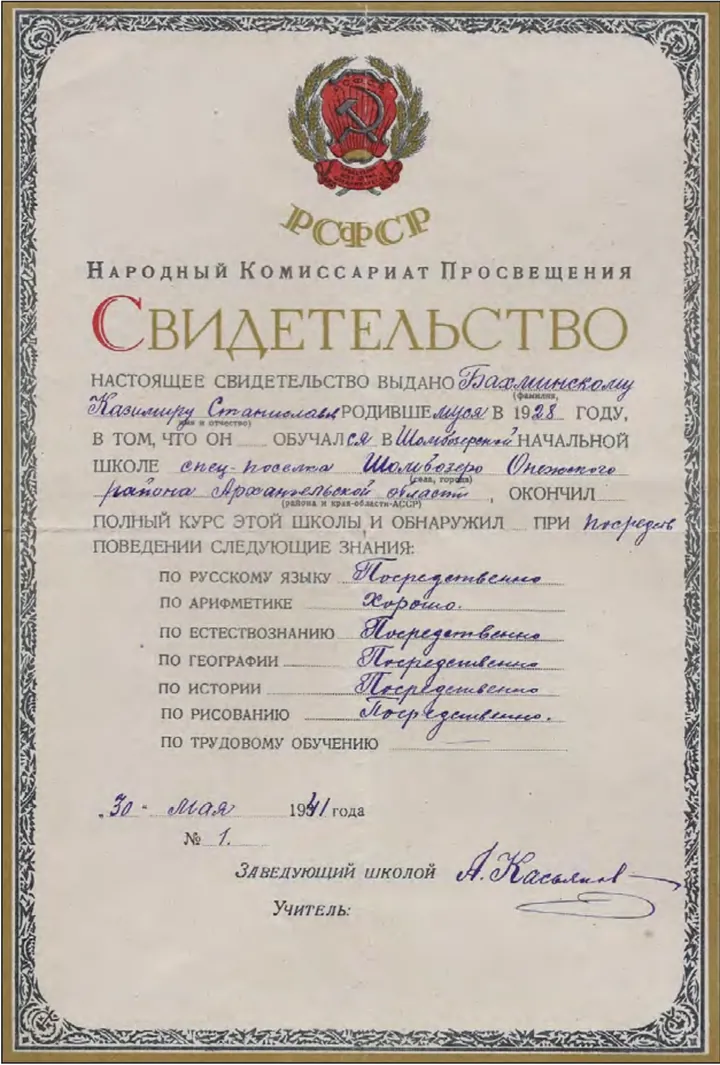 РСФСР
РСФСР
НАРОДНЫЙ КОМИССАРИАТ ПРОСВЕЩЕНИЯ
СВИДЕТЕЛЬСТВО
НАСТОЯЩЕЕ СВИДЕТЕЛЬСТВО ВЫДАНО Бахминскому
(фамилия,
Казимиру Станиславов РОДИВШЕмуся В 1928 ГОДУ,
имя и отчество)
В ТОМ, ЧТО ОН ОБУЧАЛся В Шомбозерской НАЧАЛЬНОЙ
ШКОЛЕ спец-поселка Шомвозеро Онежского
(села, города)
района Архангельской области, ОКОНЧИЛ
(района и края-области-АССР)
ПОЛНЫЙ КУРС ЭТОЙ ШКОЛЫ И ОБНАРУЖИЛ ПРИ посредств
ПОВЕДЕНИИ СЛЕДУЮЩИЕ ЗНАНИЯ:
ПО РУССКОМУ ЯЗЫКУ Посредственно
ПО АРИФМЕТИКЕ Хорошо.
ПО ЕСТЕСТВОЗНАНИЮ Посредственно
ПО ГЕОГРАФИИ Посредственно
ПО ИСТОРИИ Посредственно
ПО РИСОВАНИЮ Посредственно.
ПО ТРУДОВОМУ ОБУЧЕНИЮ —
„30" мая 1941 года
№ 1.
ЗАВЕДУЮЩИЙ ШКОЛОЙ А. Касьянов
УЧИТЕЛЬ: